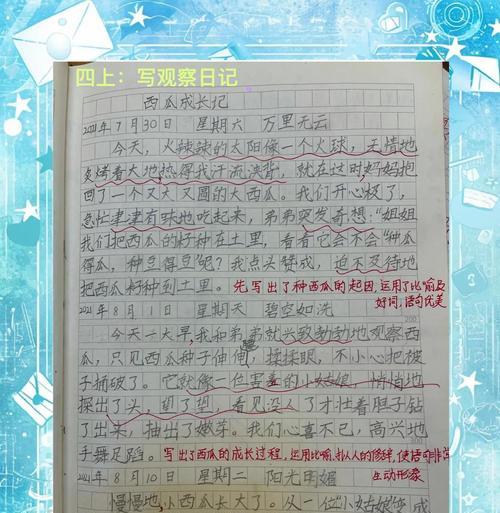 四上：写观察日记
西瓜成长记
2021年7月30日 星期六 万里无云
今天，火辣辣的太阳像一个火球，无情地
炙烤着大地热得我汗流浃背，就在这时妈妈抱
回了一个又大又圆的大西瓜。我们开心极了，
急忙津津有味地吃起来，弟弟突发奇想："姐姐
我们把西瓜的籽种在土里，看看它会不会"种瓜
得瓜，种豆得豆"呢？我点头赞成，迫不及待地
把西瓜籽种到土里。
先写出了种西瓜的起因，运用了比喻及
好词，语句优美
2021年8月1日 星期天 碧空如洗
200
今天一大早，我和弟弟就兴致勃勃地观察西
瓜，只见西瓜种子伸伸腰，揉揉眼，不小心把被
子捅破了。它就像一位害羞的小姑娘，悄悄地
探出了头，望了望，看见没人了才壮着胆子钻
了出来，抽出了嫩芽。我们心喜不已，高兴地
手舞足蹈。
写出了西瓜的成长过程，运用比喻，拟人的修辞，使语句非常
生动形象
2021年8月10日 星期二 阳光明媚
慢慢地，小西瓜长大了。从一位"小姑娘"变成